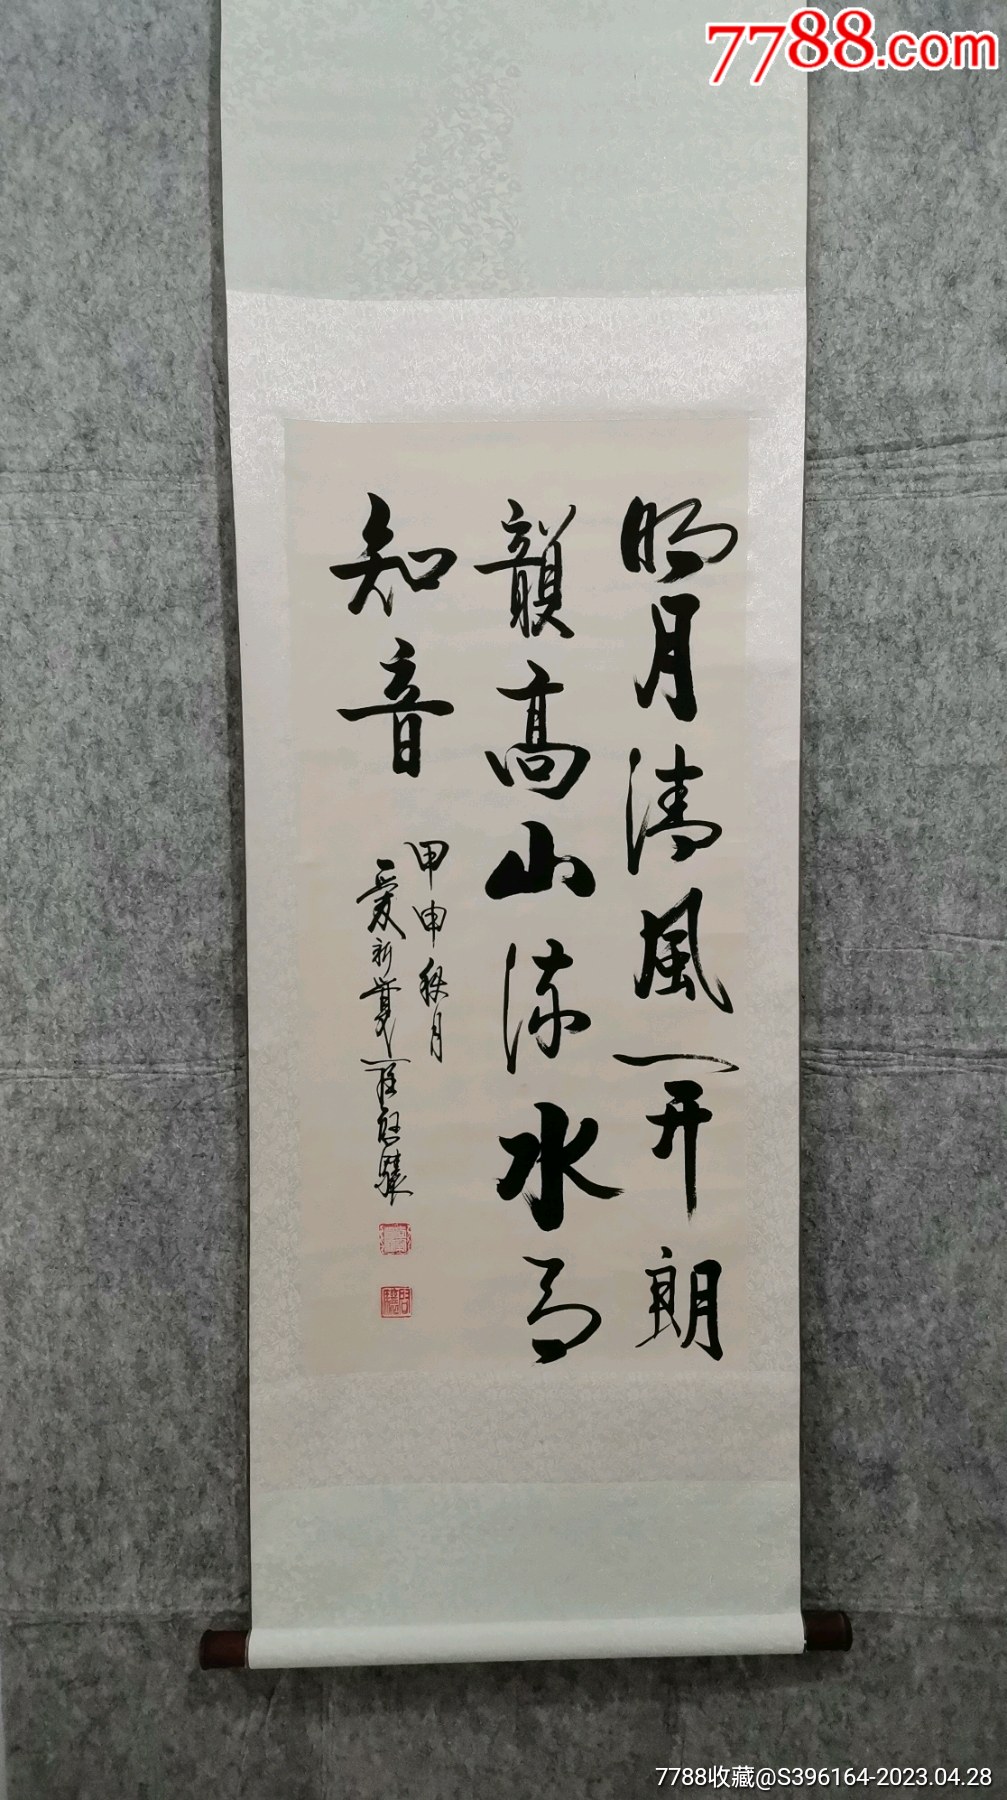 7788.com
明月清風開朗
韻高山流水有
知音
甲申秋月
愛新覺羅啟驤
7788收藏@S396164-2023.04.28